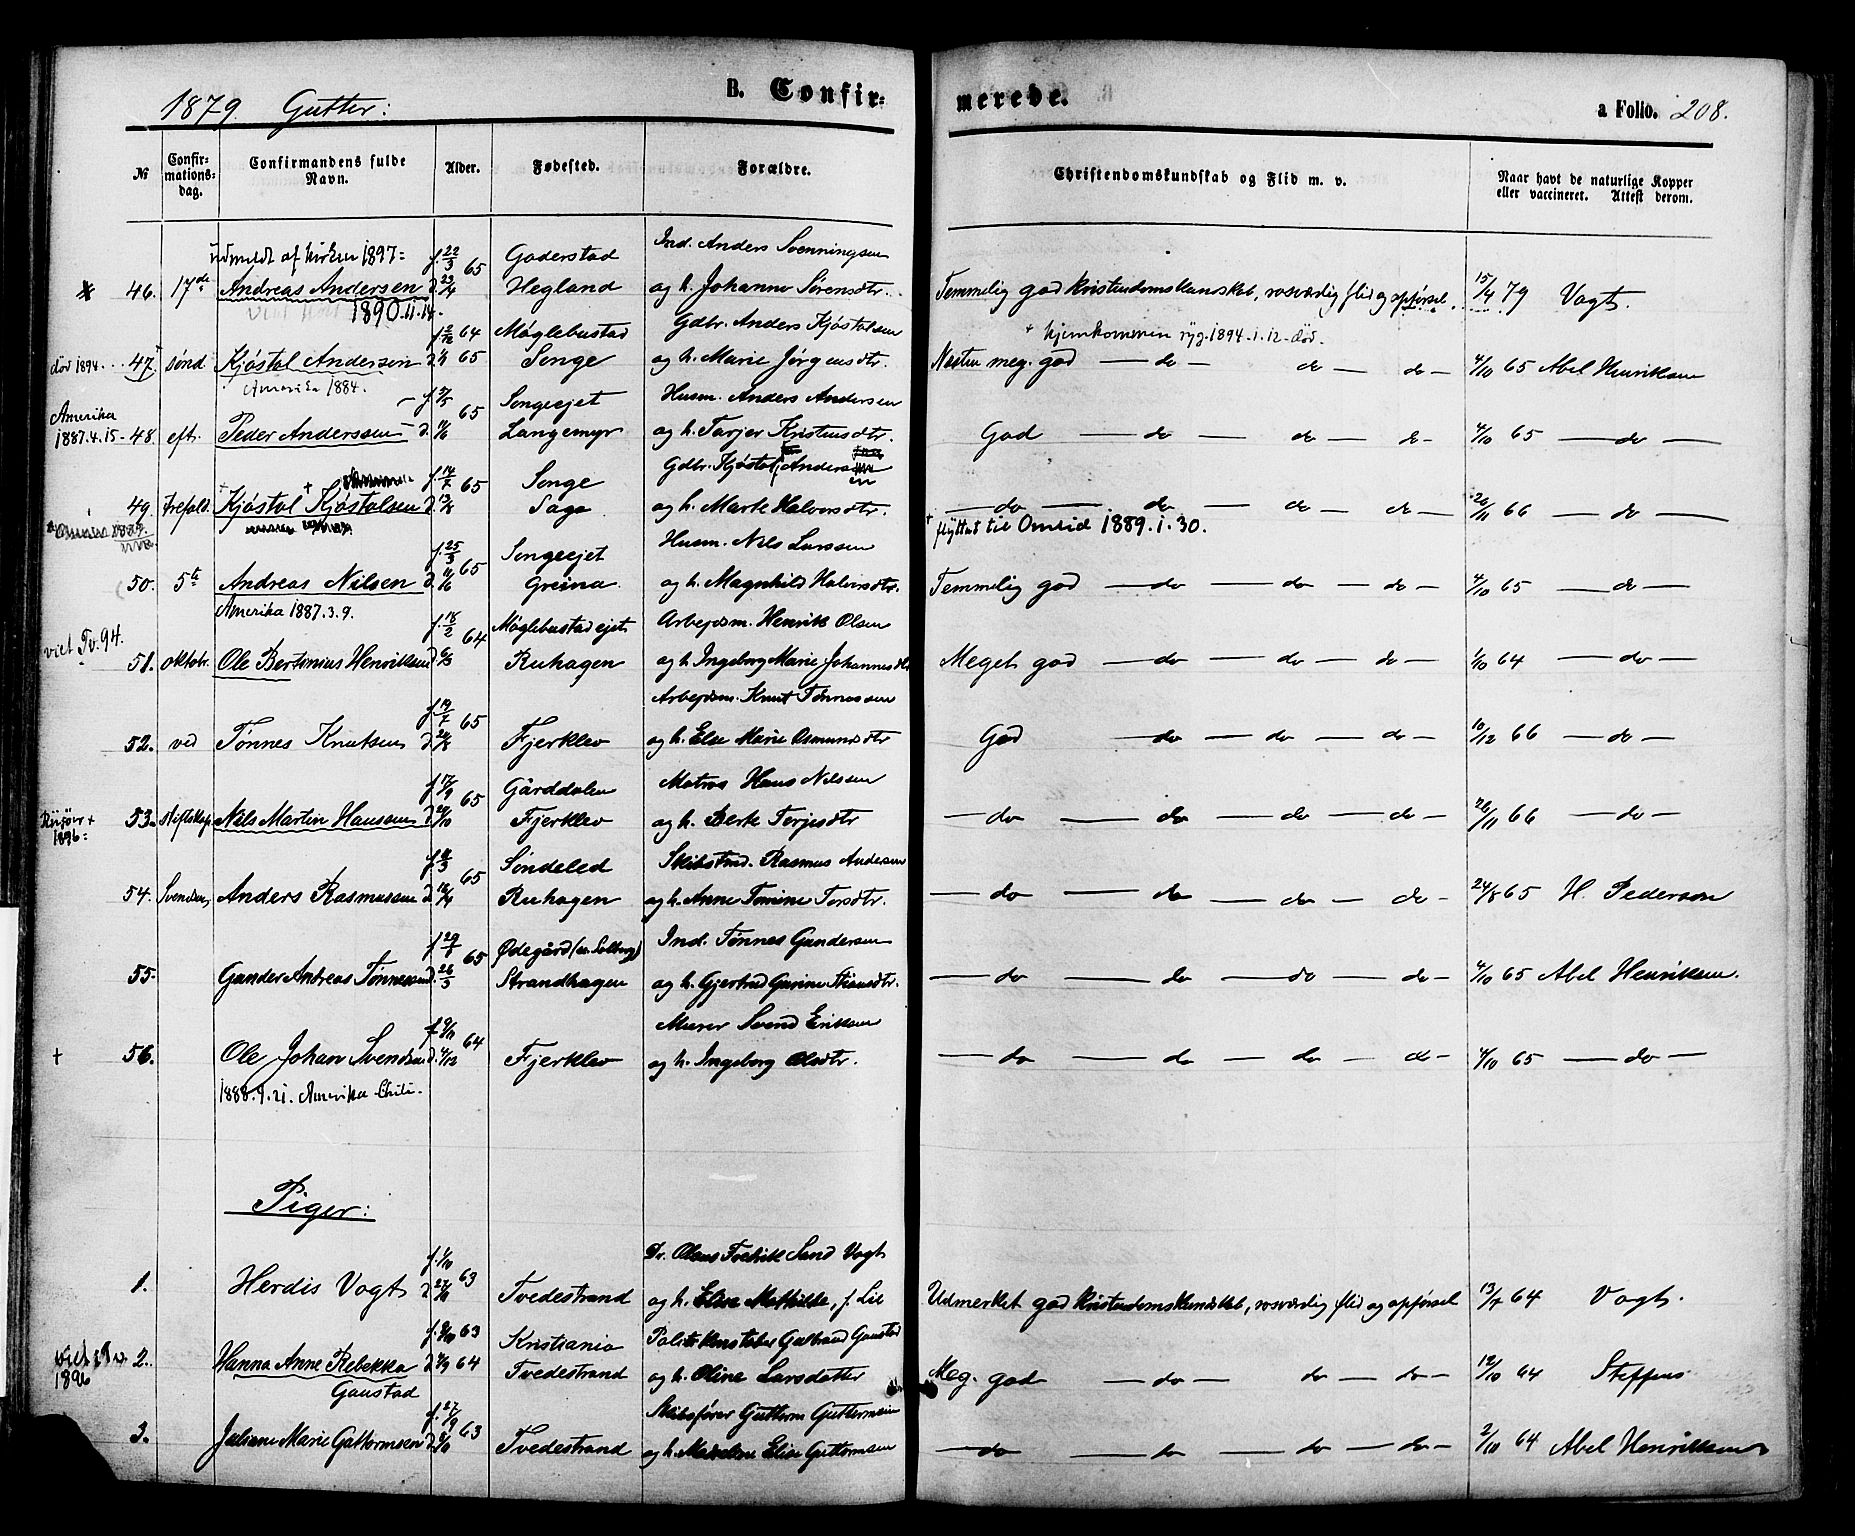 1879 Gutter:
B. Confirmerede.
a Folio. 208.
№
Confirmationsdag.
Confirmandens fulde Navn.
Alder.
Fødested.
Forældre.
Christendomskundskab og Flid m. v.
Naar havt de naturlige Kopper eller vaccineret. Attest derom.
udmeldt af kirken 1897= f. 22/3 65 Gaderstad Ind. Anders Svenningsen
46. 17de Andreas Andersen d. 23/4 Hegland og h. Johanne Sørensdtr. Temmelig god kristendomskundskab, rosværdig flid og opførsel. 15/4 79 Vogt.
1890.11.14.
64 Møglebustad Gdbr. Anders Kjøstolsen + hjemkommen syg. 1894.1.12 død.
død 1894. 47 sønd Kjøstol Andersen 65 Songe og h. Marie Jørgensdtr. Nesten meg. god — do — do — do — 4/10 65 Abel Henriksen
Amerika 1884.
Amerika 65 Songeejet Husm. Anders Andersen
1887.4.15 - 48. eft. Peder Anderssen Langemyr og h. Tarjer Kristensdtr. God — do — do — do — 4/10 65 — do —
f. 14/7 65 Songe Gdbr. Kjøstol Andersen
49. trefold. Kjøstol Kjøstolsen Saga og h. Marte Halvorsdtr. — do — do — do — do — 26/11 66 — do —
+ flyttet til Omlid 1889.1.30.
f. 25/3 65 Songeejet Husm. Nils Larssen
50. 5te Andreas Nilsen d. 11/6 Greina og h. Magnhild Halvorsdtr. Temmelig god — do — do — do — 4/10 65 — do —
Amerika 1887.3.9.
viet Tv. 94. f. 18/2 64 Møglebustadejet Arbejdsm. Henrik Olsen
51. oktobr. Ole Bertonius Henriksen Ruhagen og h. Ingeborg Marie Johannesdtr Meget god — do — do — do — 1/10 64 — do —
f. 19/7 65 Arbejdsm. Knut Tønnessen
52. ved Tønnes Knutsen Fjerklev og h. Else Marie Osmundsdtr God — do — do — do — 10/12 66 — do —
f. 17/9 65 Gårddalen Matros Hans Nilssen
Risøer + 1896= 53. stiftskap. Nils Martin Hanssen d. 29/10 Fjerklev og h. Berte Terjesdtr — do — do — do — do — 26/11 66 — do —
65 Søndeled Skibstmd. Rasmus Andersen
54. Svendsen Anders Rasmussen Ruhagen og h. Anne Tomine Torsdtr. — do — do — do — do — 24/8 65 H. Pederson
65 Ødegård Ind. Tønnes Gundersen
55. Gunder Andreas Tønnessen d. 26/3 Strandhagen og h. Gjertrud Gurine Stiansdtr. — do — do — do — do — 4/10 65 Abel Henriksen.
f. 9/11 64 Murer Svend Eriksen
† 56. Ole Johan Svendsen d. 4/12 Fjerklev og h. Ingeborg Olsdtr. — do — do — do — do — 4/10 65 — do —
1888.9.21. Amerika-Chili-
Piger:
f. 1/10 63 Dr. Olaus Fredrik Sand Vogt
1. Herdis Vogt d. 27/10 Tvedestrand og h. Elise Mathilde, f. Lie Udmerket god kristendomskundskab, rosværdig flid og opførsel 13/7 64 Vogt.
63 Kristiania Politikonstabel Gulbrand Gaustad
viet i Tv. 1896 2. Hanna Anne Rebekka Gaustad 64 Tvedestrand og h. Oline Larsdatter Meg. god — do — do — do — 12/10 64 Steffens
f. 27/9 63 Skibsfører Guttorm Guttormsen
3. Juliane Marie Guttormsen Tvedestrand og h. Elise Guttormsen — do — do — do — do — 2/10 64 Abel Henriksen